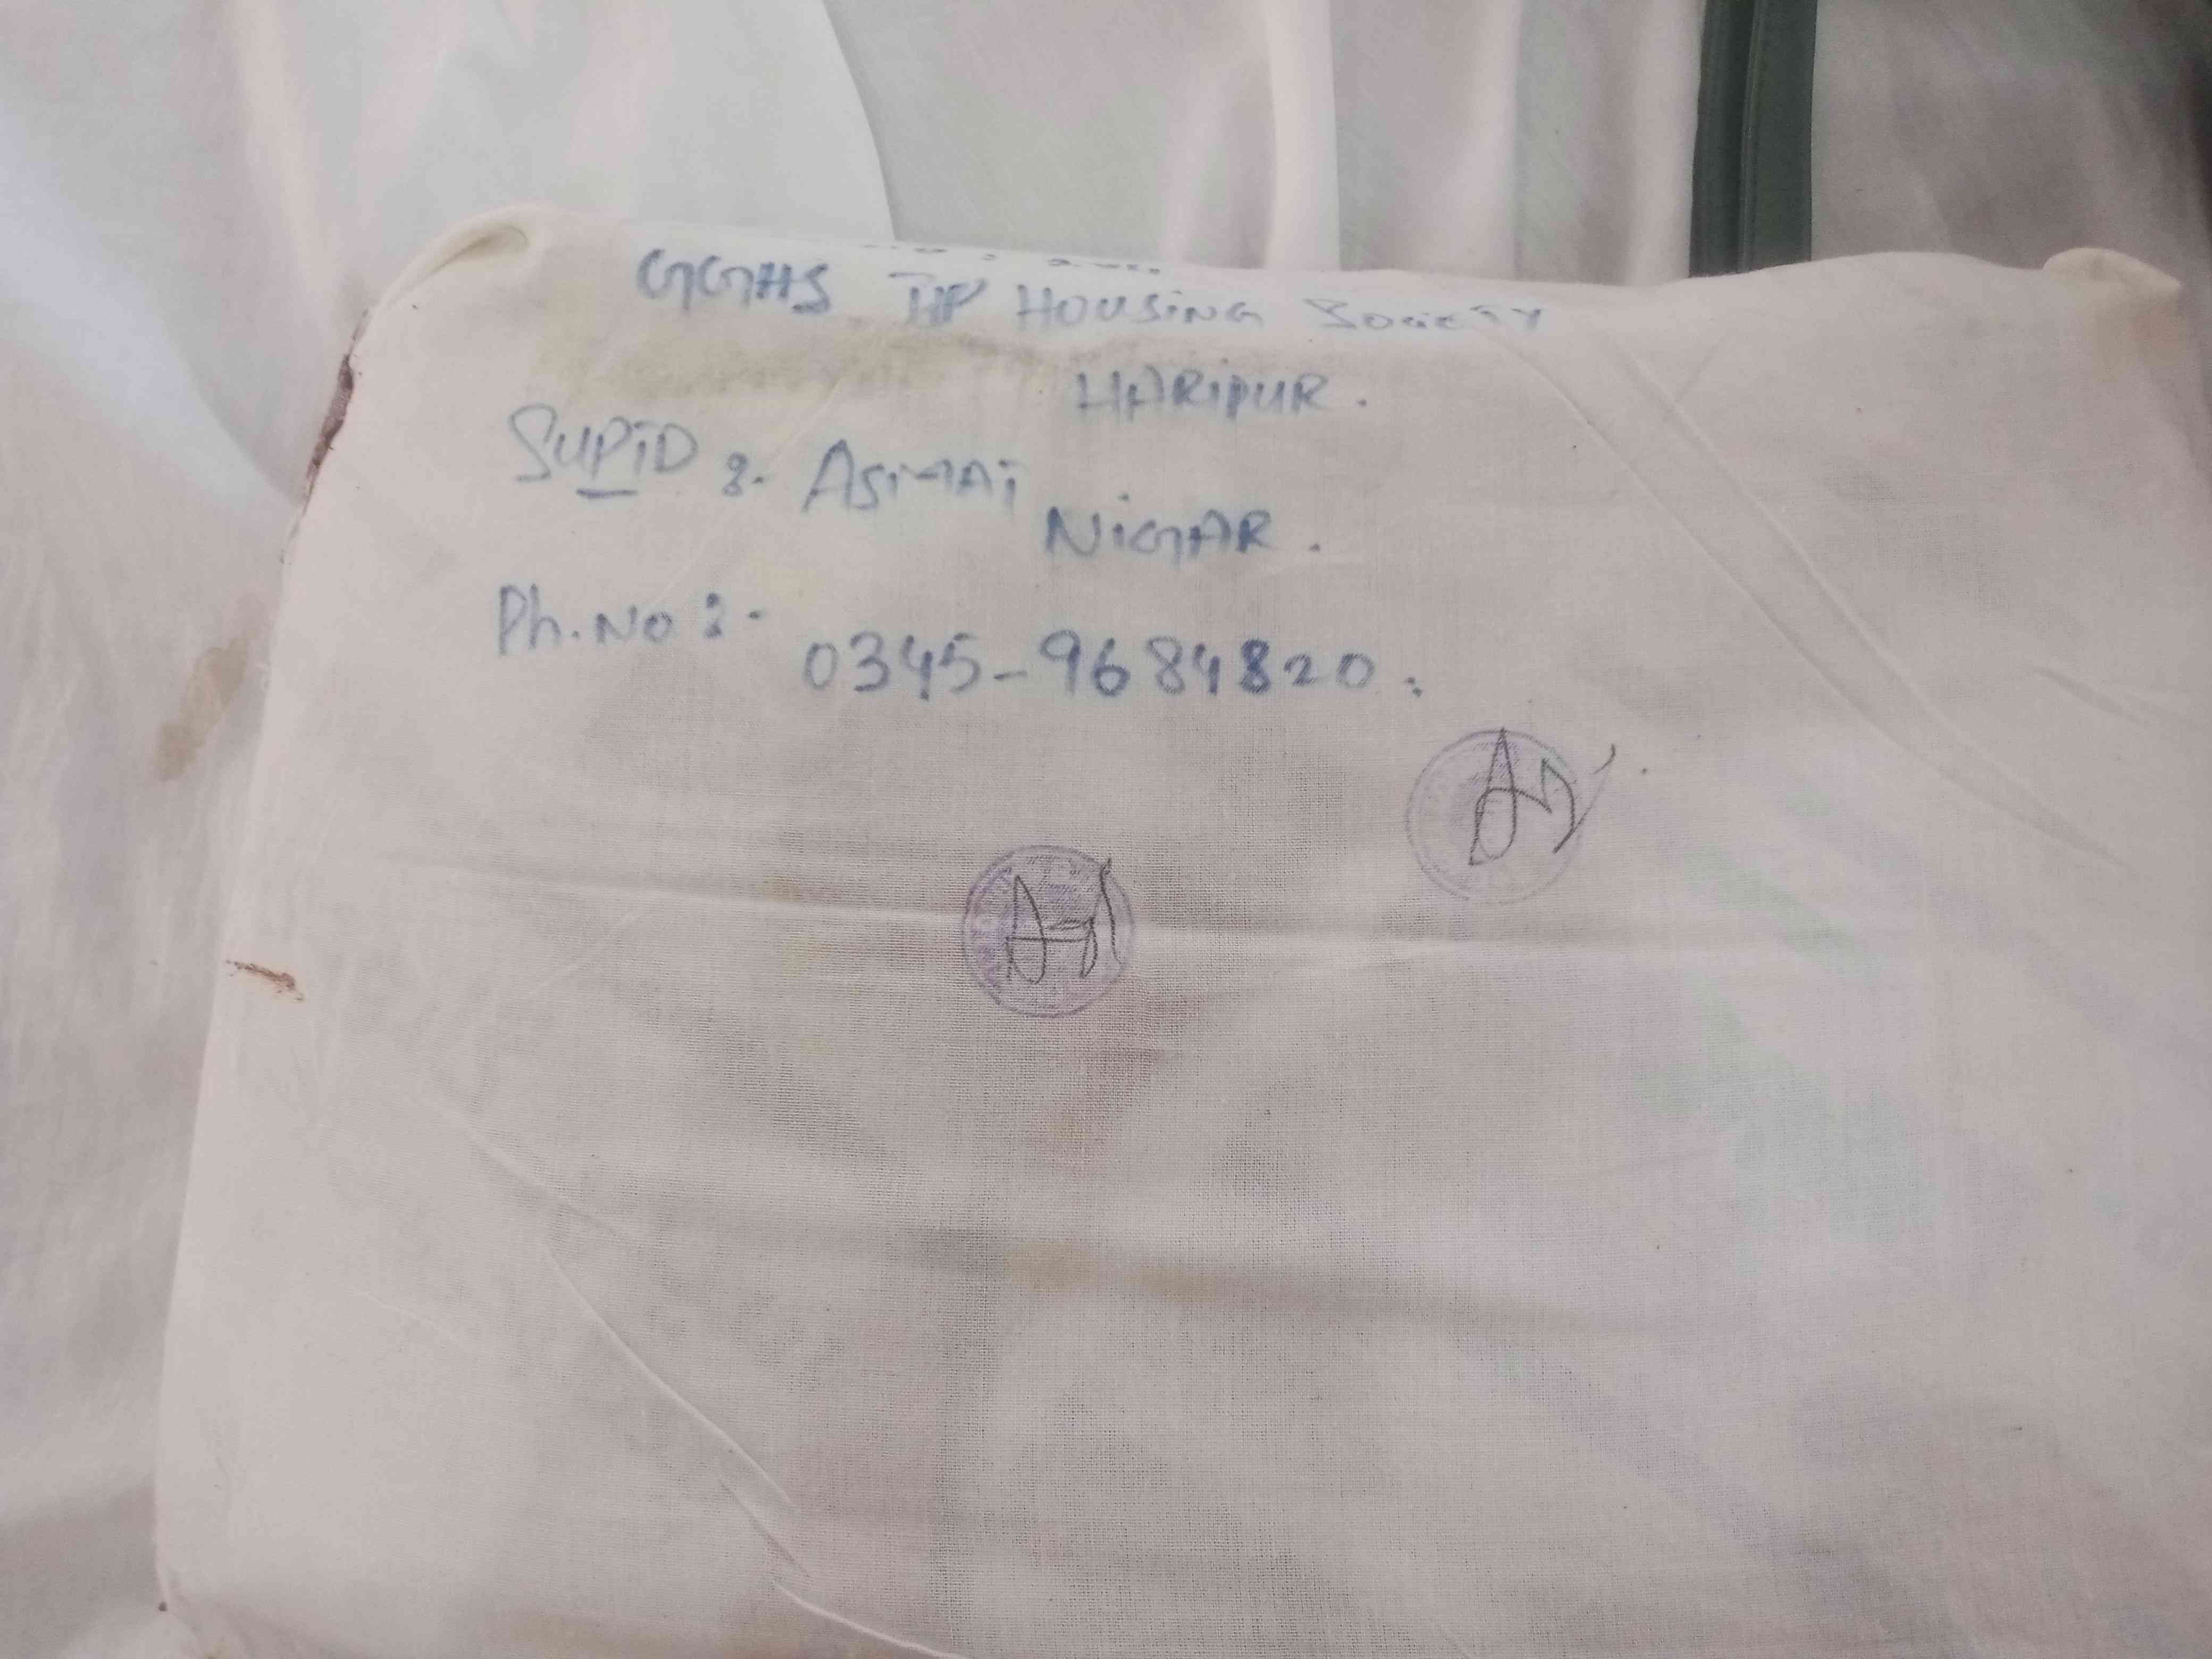 GGHS TIP HOUSING SOCIETY
HARIPUR.
SUPTD :- ASMAT
NIGAR.
Ph. No :-
0345-9684820.